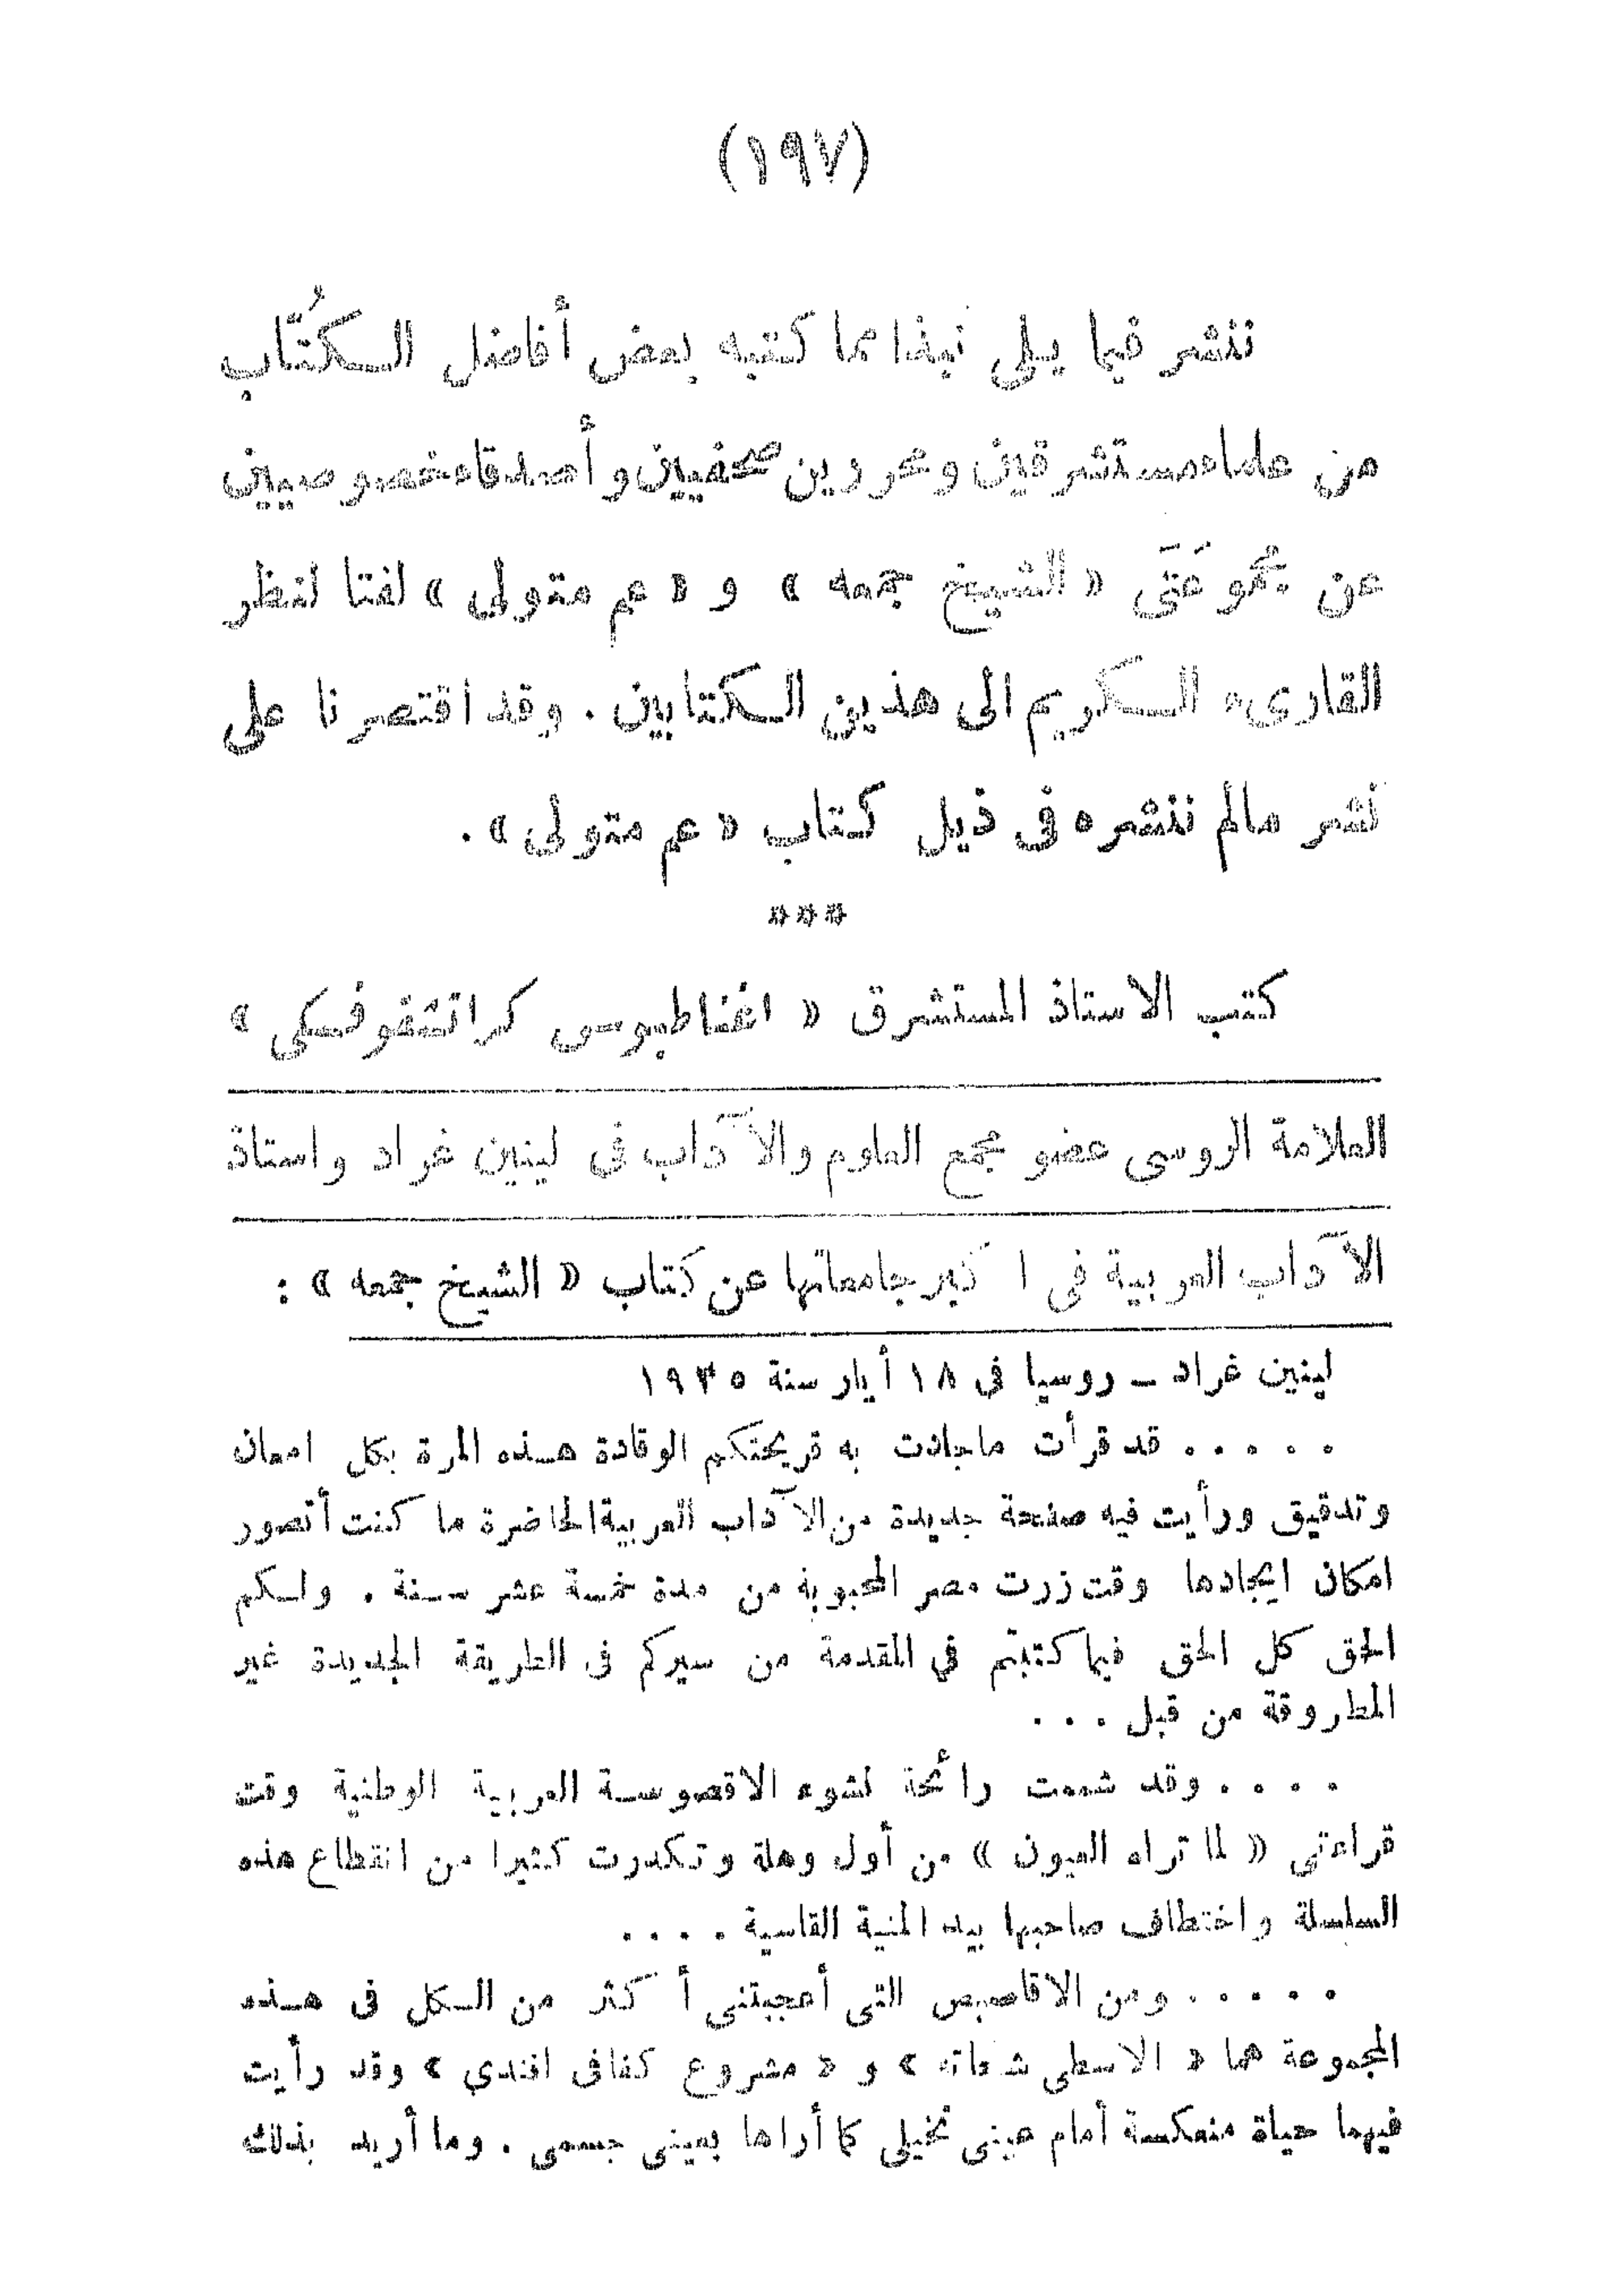 (١٩٧)
ننشر فيما يلى نبذا مما كتبه بعض أفاضل الكُتّاب
من علماء مستشرقين ومحررين صحفيين وأصدقاء خصوصيين
عن مجموعَتَى « الشيخ جمعه » و « عم متولى » لفتا لنظر
القارىء الكريم الى هذين الكتابين . وقد اقتصرنا على
نشر مالم ننشره فى ذيل كتاب « عم متولى » .
***
كتب الاستاذ المستشرق « اغناطيوس كراتشقوفسكى »
العلامة الروسى عضو مجمع العلوم والآداب فى لينين غراد واستاذ
الآداب العربية فى اكبر جامعاتها عن كتاب « الشيخ جمعه » :
لينين غراد ــ روسيا فى ١٨ أيار سنة ١٩٣٥
. . . . . قد قرأت ماجادت به قريحتكم الوقادة هذه المرة بكل امعان
وتدقيق ورأيت فيه صفحة جديدة من الآداب العربية الحاضرة ما كنت أتصور
امكان ايجادها وقت زرت مصر المحبوبة من مدة خمسة عشر سنة . ولكم
الحق كل الحق فيما كتبتم في المقدمة من سيركم فى الطريقة الجديدة غير
المطروقة من قبل . . .
. . . . وقد شممت رائحة نشوء الاقصوصة العربية الوطنية وقت
قراءتى « لما تراه العيون » من أول وهلة وتكدرت كثيرا من انقطاع هذه
السلسلة واختطاف صاحبها بيد المنية القاسية . . . .
. . . . . ومن الاقاصيص التى أعجبتنى أكثر من الكل فى هذه
المجموعة هما « الاسطى شحاته » و « مشروع كفافى افندي » وقد رأيت
فيهما حياة منعكسة أمام عينى تخيلى كما أراها بعينى جسمى . وما أريد بذلك